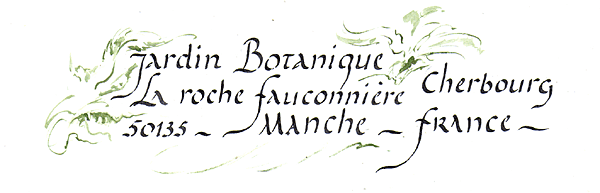 Jardin Botanique
La roche fauconnière Cherbourg
50135 - Manche - France -